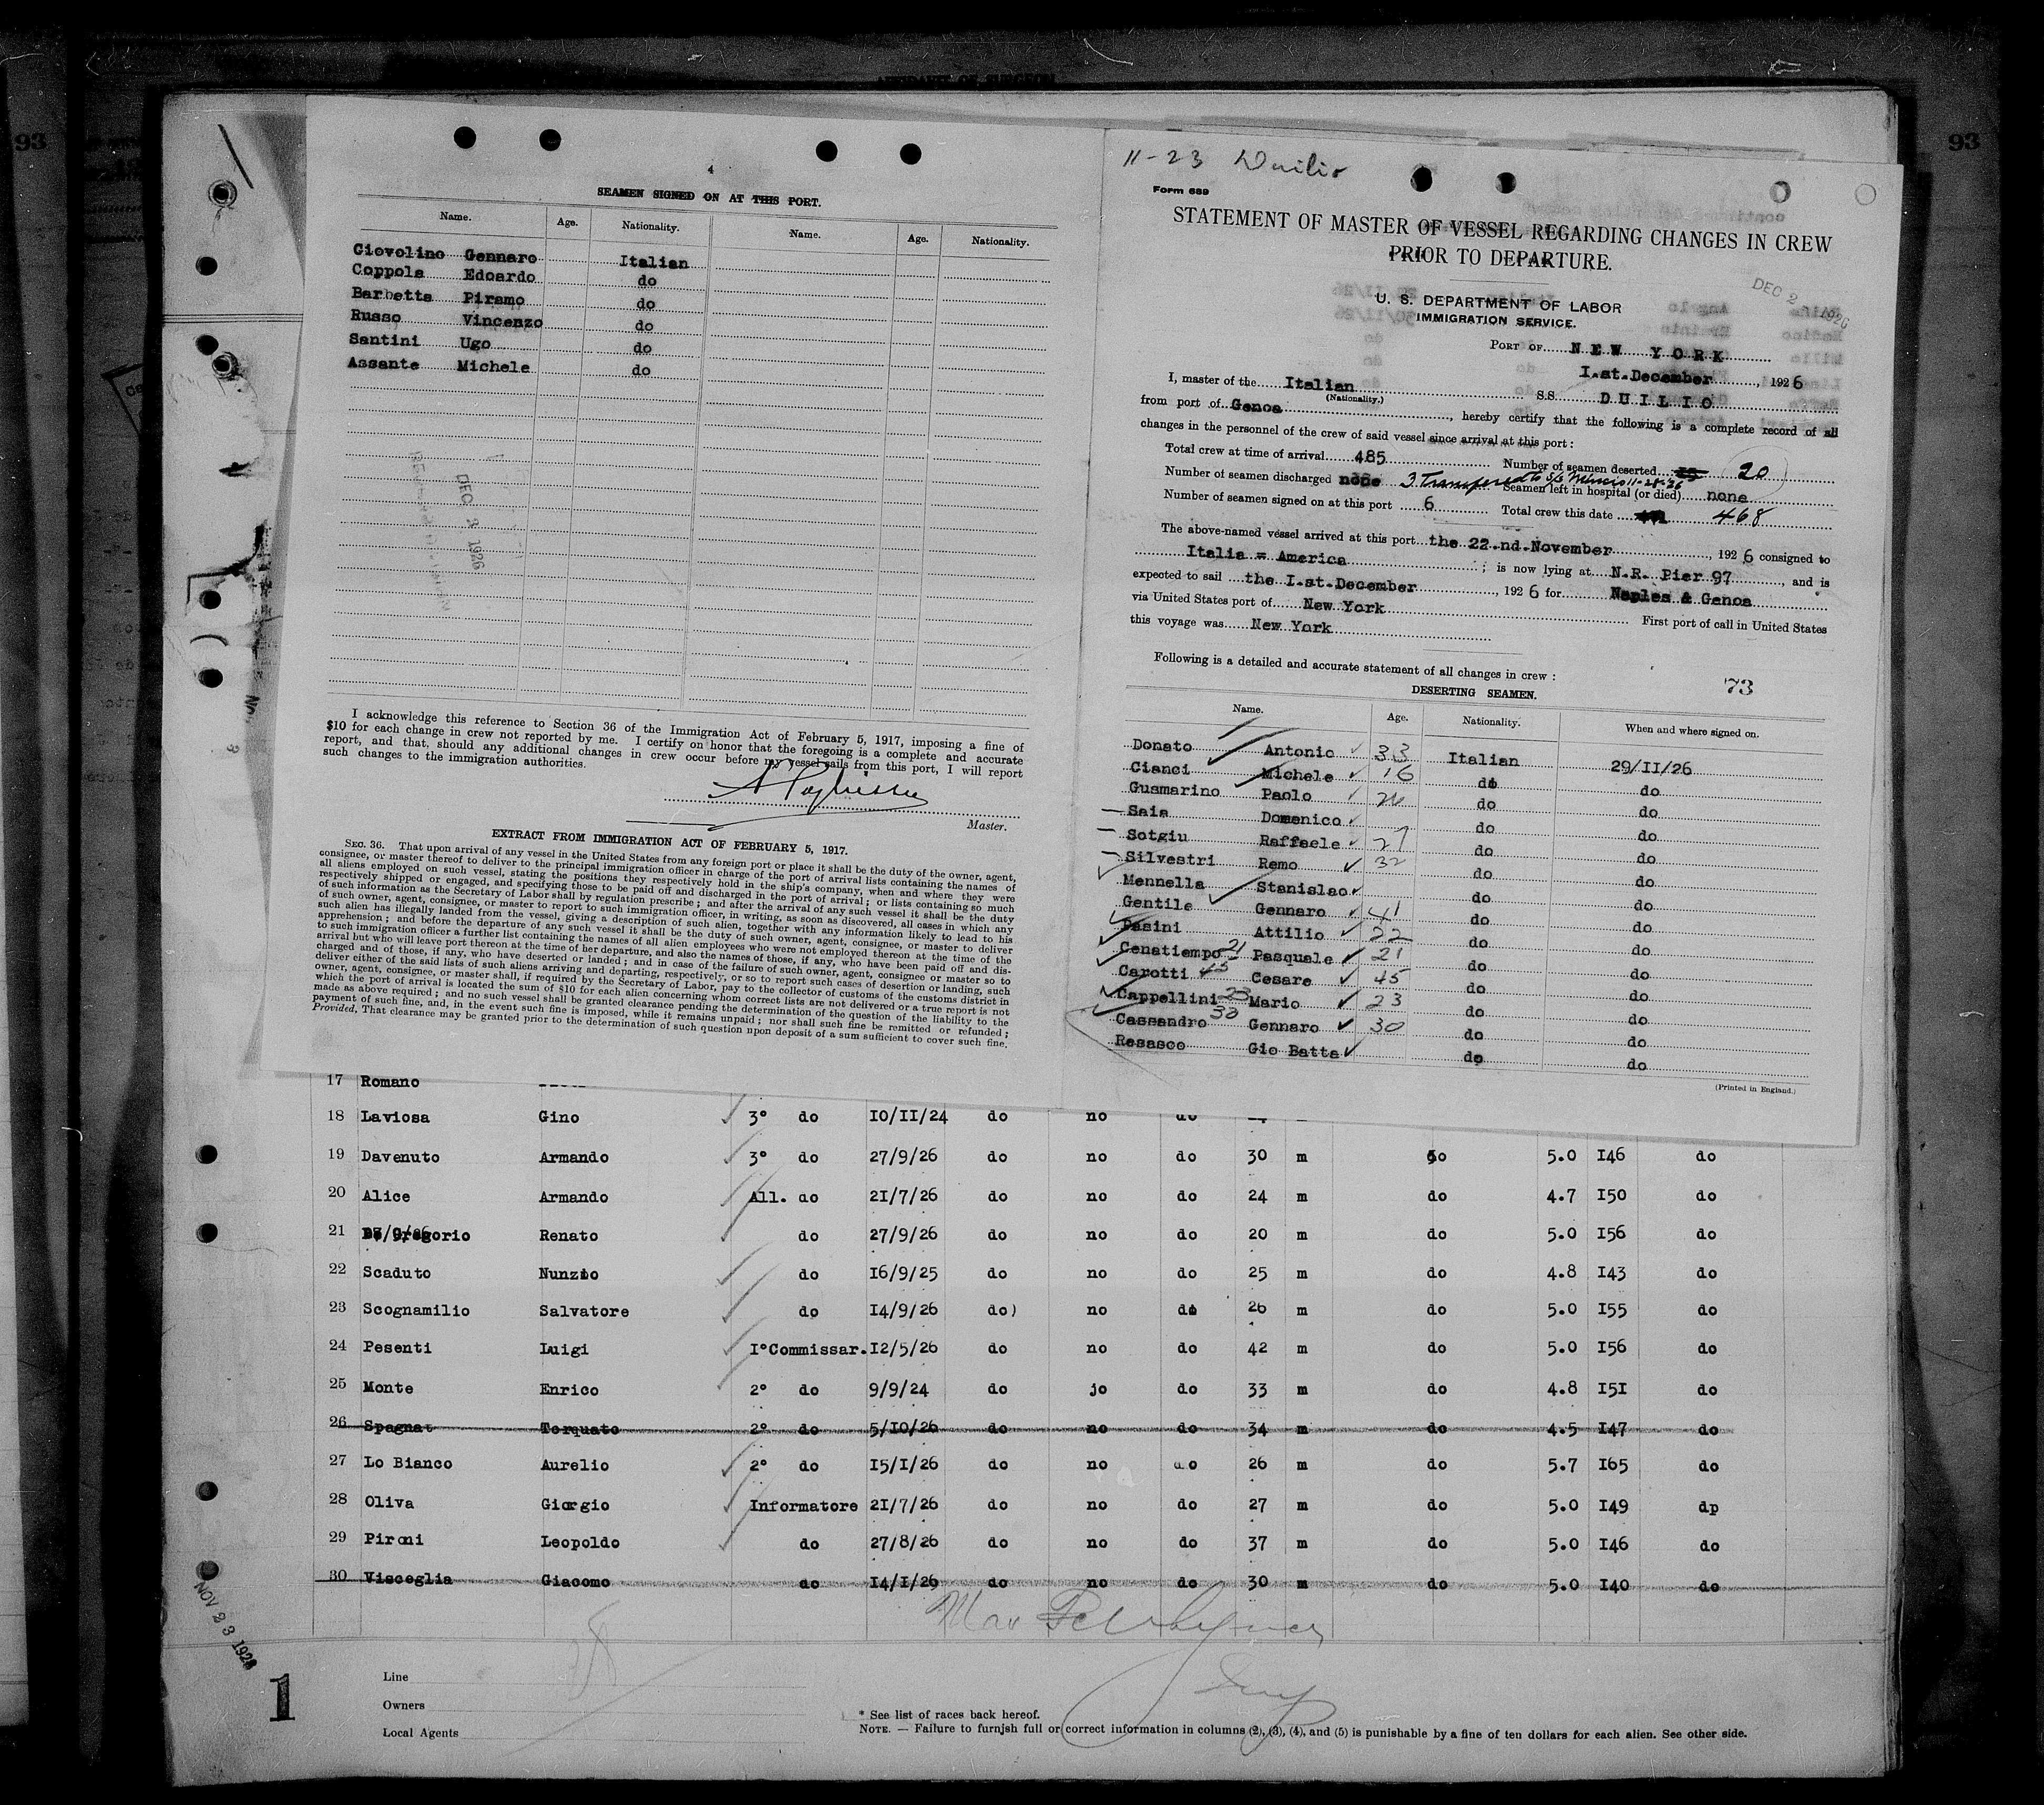 AFFIDAVIT OF SURGEON
93
93
4
SEAMEN SIGNED ON AT THIS PORT.
Name. Age. Nationality. Name. Age. Nationality.
Giovolino Gennaro Italian
Coppola Edoardo do
Barbetta Piramo do
Russo Vincenzo do
Santini Ugo do
Assante Michele do
DEC 2 1926
I acknowledge this reference to Section 36 of the Immigration Act of February 5, 1917, imposing a fine of
$10 for each change in crew not reported by me. I certify on honor that the foregoing is a complete and accurate
report, and that, should any additional changes in crew occur before my vessel sails from this port, I will report
such changes to the immigration authorities.
Master.
EXTRACT FROM IMMIGRATION ACT OF FEBRUARY 5, 1917.
SEC. 36. That upon arrival of any vessel in the United States from any foreign port or place it shall be the duty of the owner, agent,
consignee, or master thereof to deliver to the principal immigration officer in charge of the port of arrival lists containing the names of
all aliens employed on such vessel, stating the positions they respectively hold in the ship's company, when and where they were
respectively shipped or engaged, and specifying those to be paid off and discharged in the port of arrival; or lists containing so much
of such information as the Secretary of Labor shall by regulation prescribe; and after the arrival of any such vessel it shall be the duty
of such owner, agent, consignee, or master to report to such immigration officer, in writing, as soon as discovered, all cases in which any
such alien has illegally landed from the vessel, giving a description of such alien, together with any information likely to lead to his
apprehension; and before the departure of any such vessel it shall be the duty of such owner, agent, consignee, or master to deliver
to such immigration officer a further list containing the names of all alien employees who were not employed thereon at the time of the
arrival but who will leave port thereon at the time of her departure, and also the names of those, if any, who have been paid off and dis-
charged and of those, if any, who have deserted or landed; and in case of the failure of such owner, agent, consignee or master so to
deliver either of the said lists of such aliens arriving and departing, respectively, or so to report such cases of desertion or landing, such
owner, agent, consignee, or master shall, if required by the Secretary of Labor, pay to the collector of customs of the customs district in
which the port of arrival is located the sum of $10 for each alien concerning whom correct lists are not delivered or a true report is not
made as above required; and no such vessel shall be granted clearance pending the determination of the question of the liability to the
payment of such fine, and, in the event such fine is imposed, while it remains unpaid; nor shall such fine be remitted or refunded;
Provided, That clearance may be granted prior to the determination of such question upon deposit of a sum sufficient to cover such fine.
11-23 Duilio
Form 689
STATEMENT OF MASTER OF VESSEL REGARDING CHANGES IN CREW
PRIOR TO DEPARTURE.
DEC 2 1926
U. S. DEPARTMENT OF LABOR
IMMIGRATION SERVICE.
PORT OF NEW YORK
I.st.December, 1926
I, master of the Italian S.S. DUILIO
(Nationality.)
from port of Genoa, hereby certify that the following is a complete record of all
changes in the personnel of the crew of said vessel since arrival at this port:
Total crew at time of arrival 485 Number of seamen deserted 20
Number of seamen discharged none 3 Transfered to S/S Mincio 11-28-26 Seamen left in hospital (or died) none
Number of seamen signed on at this port 6 Total crew this date 468
The above-named vessel arrived at this port the 22.nd.November, 1926 consigned to
Italia = America; is now lying at N.R. Pier 97, and is
expected to sail the I.st.December, 1926 for Naples & Genoa
via United States port of New York First port of call in United States
this voyage was New York
Following is a detailed and accurate statement of all changes in crew:
73
DESERTING SEAMEN.
Name. Age. Nationality. When and where signed on.
Donato Antonio 33 Italian 29/II/26
Cianci Michele 16 do do
Guamarino Paolo 26 do do
Saia Domenico do do
Sotgiu Raffaele 27 do do
Silvestri Remo 32 do do
Mennella Stanislao do do
Gentile Gennaro 41 do do
Pasini Attilio 22 do do
Cenatiempo 21 Pasquale 21 do do
Carotti 45 Cesare 45 do do
Cappellini 23 Mario 23 do do
Cassandro 30 Gennaro 30 do do
Rosasco Gio Batta do do
(Printed in England.)
17 Romano
18 Laviosa Gino 3° do 10/II/24 do no do
19 Davenuto Armando 3° do 27/9/26 do no do 30 m do 5.0 I46 do
20 Alice Armando All. do 21/7/26 do no do 24 m do 4.7 I50 do
21 De Gregorio Renato do 27/9/26 do no do 20 m do 5.0 I56 do
22 Scaduto Nunzio do 16/9/25 do no do 25 m do 4.8 I43 do
23 Scognamilio Salvatore do 14/9/26 do) no do 26 m do 5.0 I55 do
24 Pesenti Luigi I° Commissar. 12/5/26 do no do 42 m do 5.0 I56 do
25 Monte Enrico 2° do 9/9/24 do jo do 33 m do 4.8 I5I do
26 Spagnat Torquato 2° do 5/10/26 do no do 34 m do 4.5 I47 do
27 Lo Bianco Aurelio 2° do I5/I/26 do no do 26 m do 5.7 I65 do
28 Oliva Giorgio Informatore 21/7/26 do no do 27 m do 5.0 I49 dp
29 Pironi Leopoldo do 27/8/26 do no do 37 m do 5.0 I46 do
30 Visceglia Giacomo do I4/I/26 do no do 30 m do 5.0 I40 do
NOV 23 1926
1
Line
Owners
Local Agents
* See list of races back hereof.
NOTE. — Failure to furnish full or correct information in columns (2), (3), (4), and (5) is punishable by a fine of ten dollars for each alien. See other side.